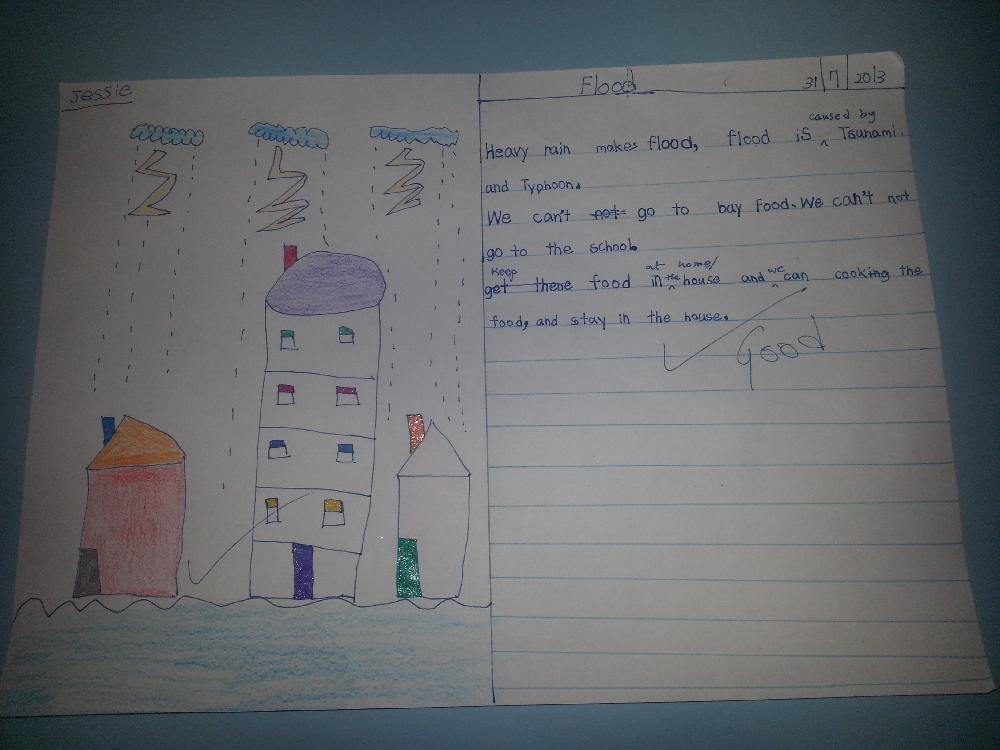 Jessie
Flood 31 7 2013
caused by
Heavy rain makes flood, flood is ^ Tsunami.
and Typhoon.
We can't not go to buy food. We can't not
go to the school.
Keep at home/
get there food in ^ the house and ^ we can cooking the
food, and stay in the house.
Good